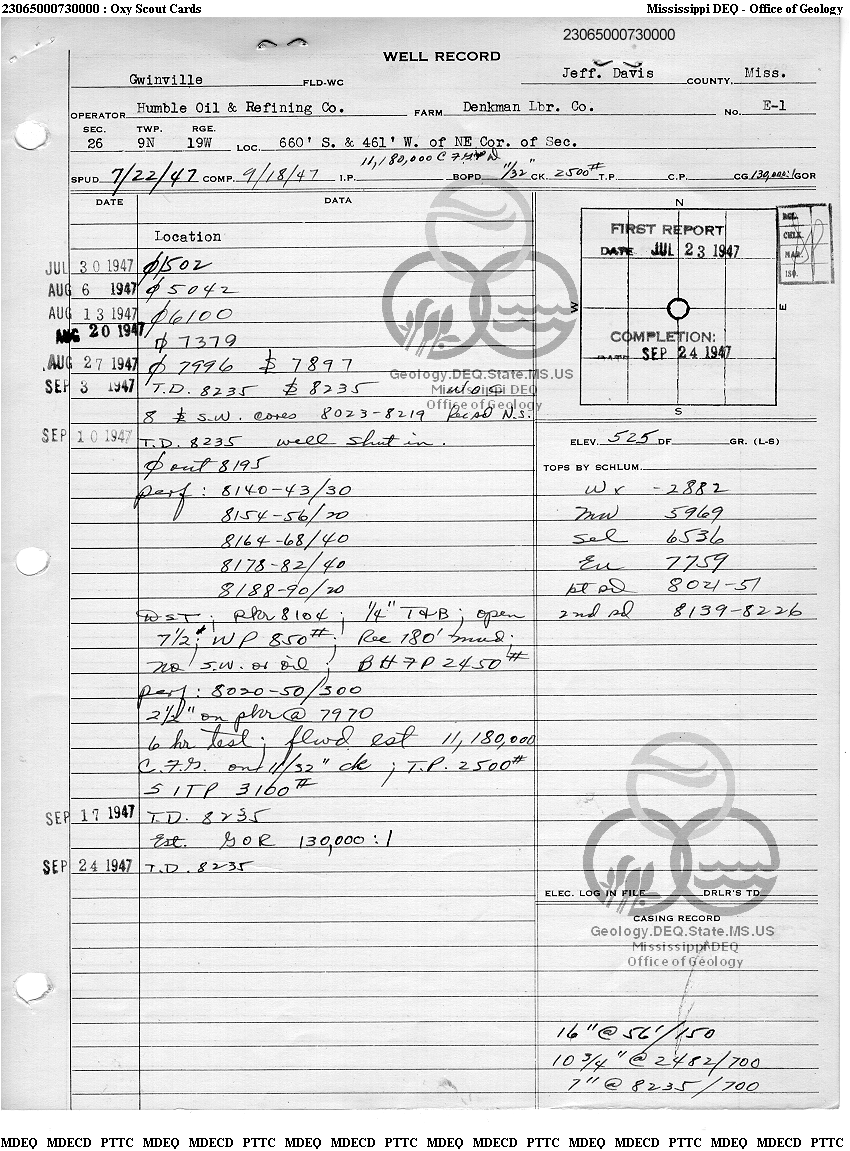 23065000730000 : Oxy Scout Cards Mississippi DEQ - Office of Geology
23065000730000
WELL RECORD
Gwinville FLD-WC Jeff. Davis COUNTY, Miss.
OPERATOR Humble Oil & Refining Co. FARM Denkman Lbr. Co. No. E-1
SEC. TWP. RGE.
26 9N 19W LOC. 660' S. & 461' W. of NE Cor. of Sec.
SPUD 7/22/47 COMP. 9/18/47 I.P. 11,180,000 BOPD 11/32" CK. 2500# T.P. C.P. CG 130,000:1 GOR
DATE DATA
Location
JUL 30 1947 1502
AUG 6 1947 5042
AUG 13 1947 6100
AUG 20 1947 7379
AUG 27 1947 7996 7897
SEP 3 1947 T.D. 8235 8235 WOC
8 S.W. cores 8023-8219 Rec sd N.S.
SEP 10 1947 T.D. 8235 well shut in.
out 8195
perf: 8140-43/30
8154-56/20
8164-68/40
8178-82/40
8188-90/20
DST; pkr 8104; 1/4" T&B; open
7 1/2; WP 850#; Rec 180' mud;
no S.W. or oil; BHFP 2450#
perf: 8020-50/300
2 1/2" on pkr @ 7970
6 hr test; flwd est 11,180,000
C.F.G. on 11/32" ck; T.P. 2500#
SITP 3100#
SEP 17 1947 T.D. 8235
Est. GOR 130,000:1
SEP 24 1947 T.D. 8235
N
W E
S
FIRST REPORT
DATE JUL 23 1947
COMPLETION:
DATE SEP 24 1947
RGL.
CHLK.
MAR.
ISO.
ELEV. 525 DF GR. (L-S)
TOPS BY SCHLUM.
Wx -2882
MW 5969
Sel 6536
Eu 7759
1st sd 8021-51
2nd sd 8139-8226
ELEC. LOG IN FILE DRLR'S TD
CASING RECORD
16" @ 56'/150
10 3/4" @ 2482/700
7" @ 8235/700
Geology.DEQ.State.MS.US
Mississippi DEQ
Office of Geology
Geology.DEQ.State.MS.US
Mississippi DEQ
Office of Geology
MDEQ MDECD PTTC MDEQ MDECD PTTC MDEQ MDECD PTTC MDEQ MDECD PTTC MDEQ MDECD PTTC MDEQ MDECD PTTC